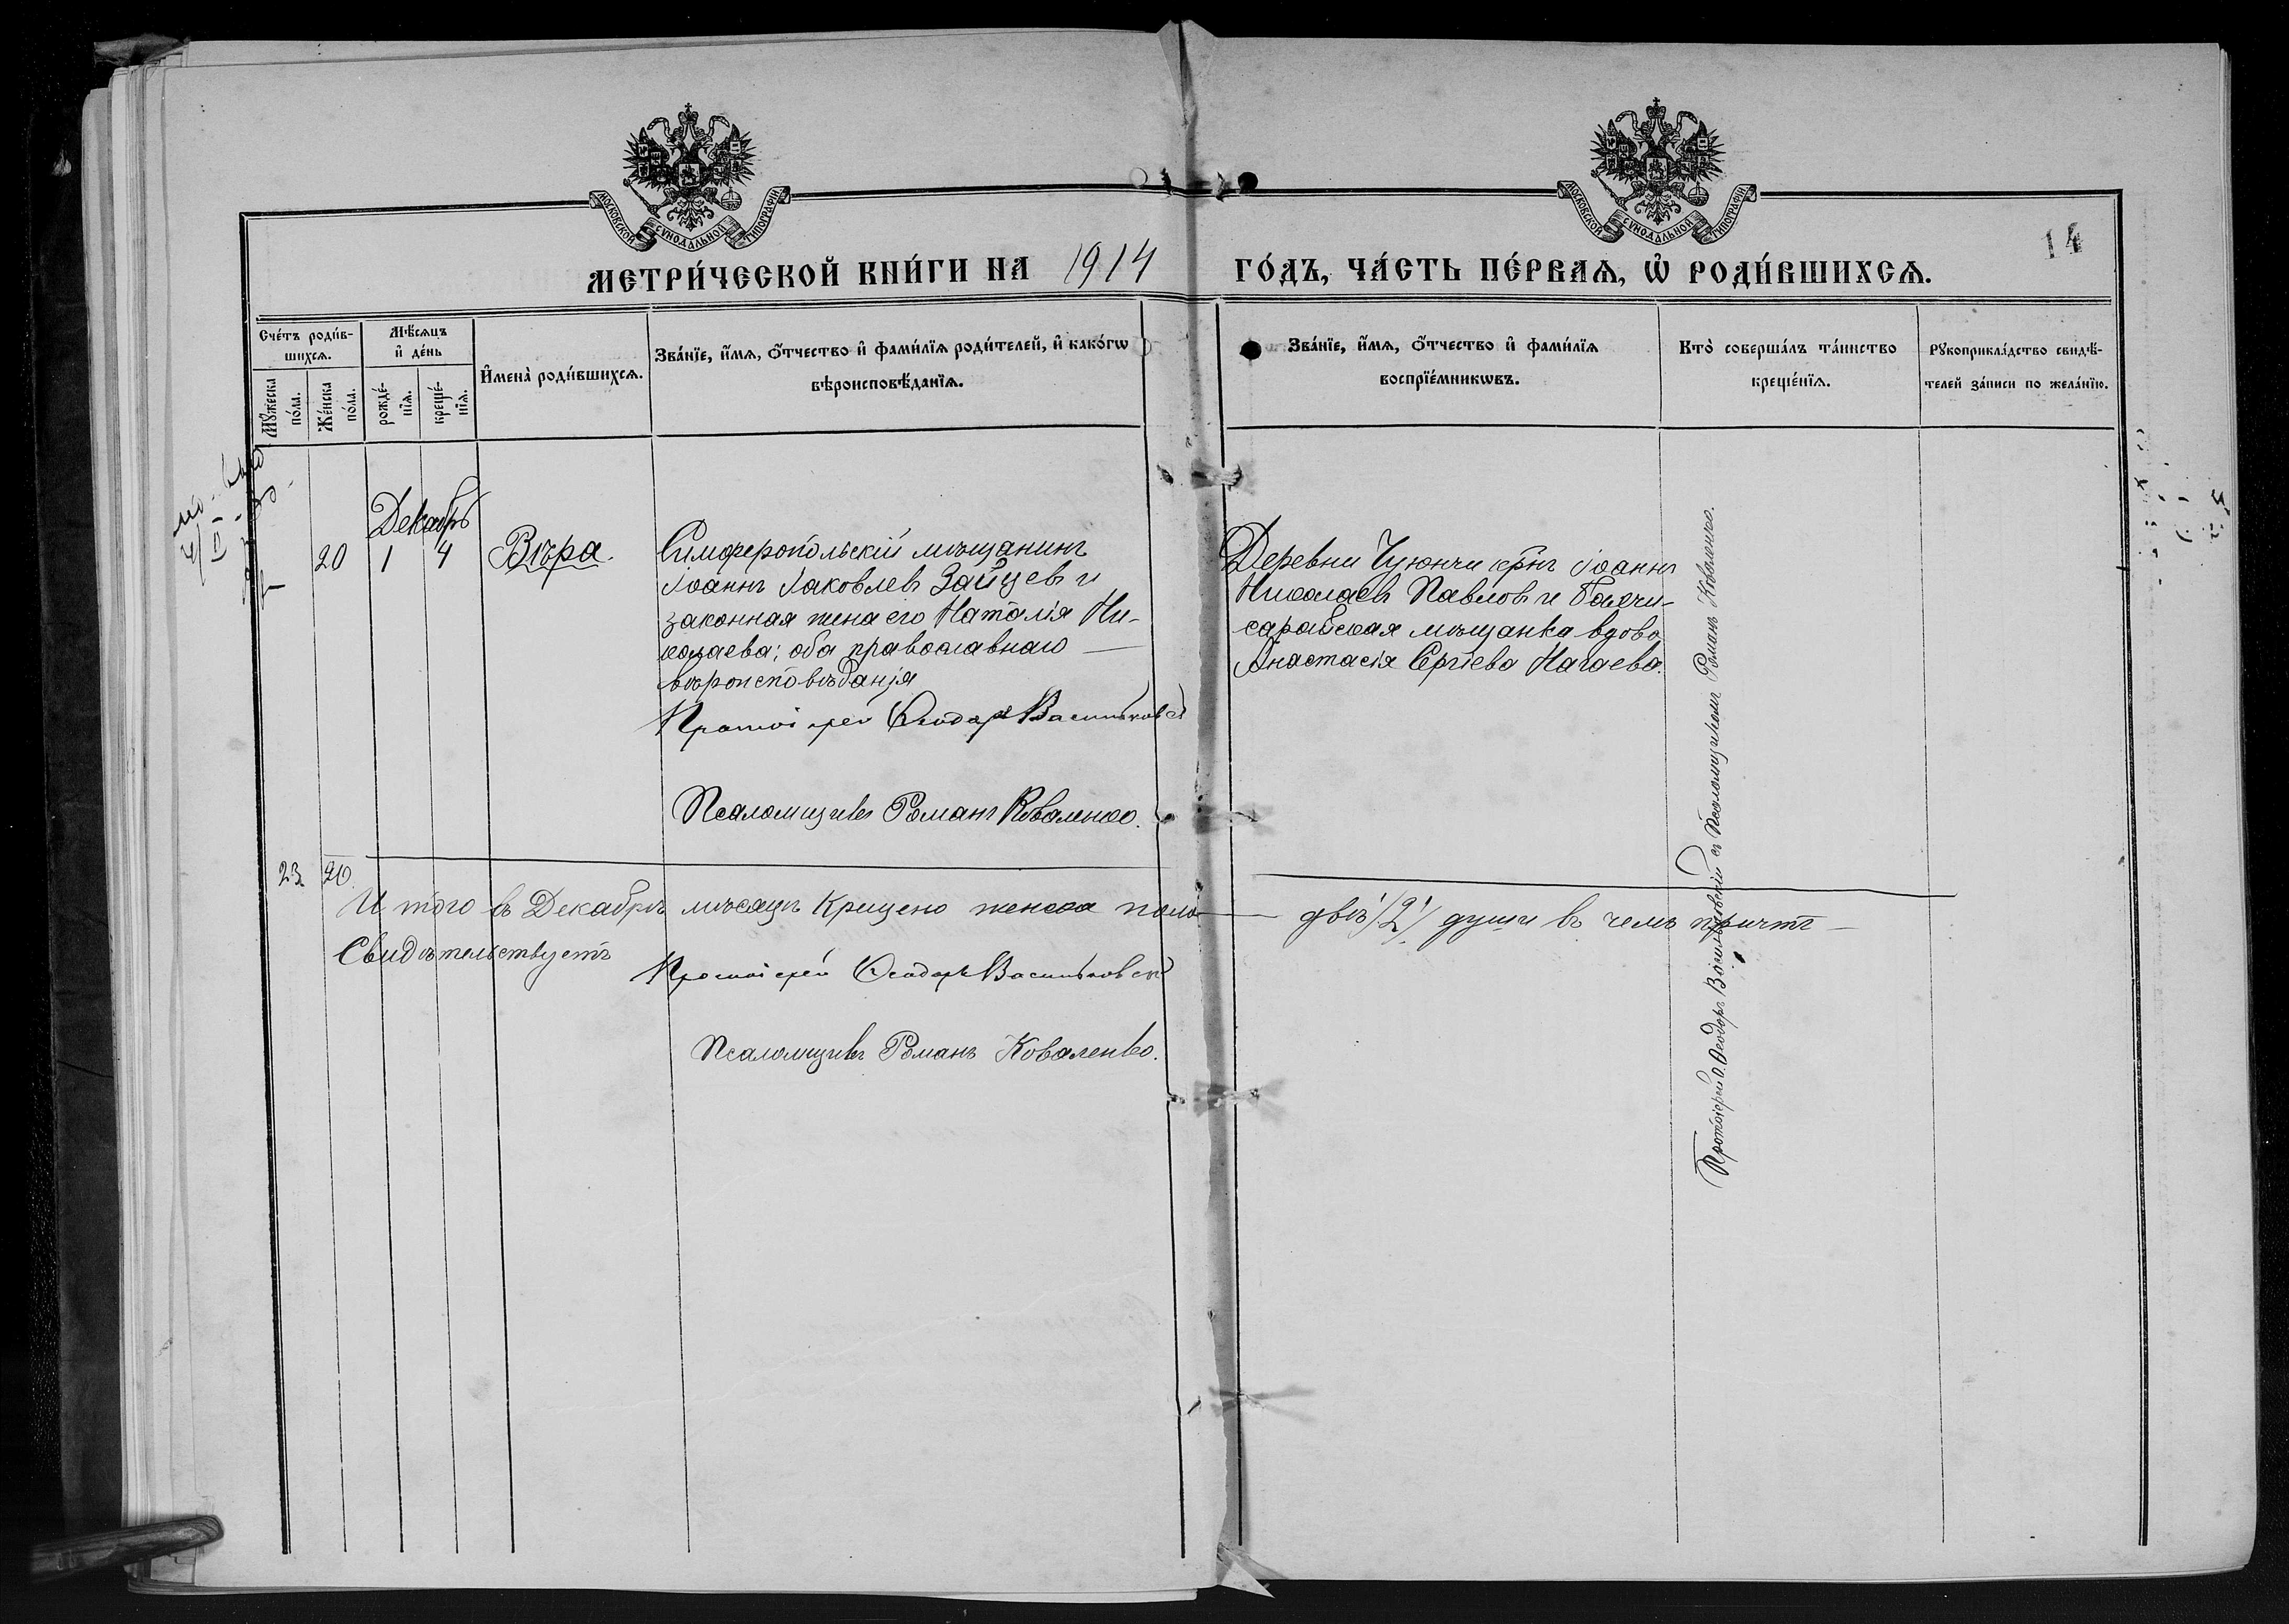 МОСКОВСКОЙ СѴНОДАЛЬНОЙ ТИПОГРАФІИ
МОСКОВСКОЙ СѴНОДАЛЬНОЙ ТИПОГРАФІИ
14
МЕТРИ́ЧЕСКОЙ КНИ́ГИ НА 1914 ГО́ДЪ, ЧА́СТЬ ПЕ́РВАѦ, Ѡ҆ РОДИ́ВШИХСѦ.
Сче́тъ роди́в-
шихсѧ.
Мꙋ́жеска
по́ла.
Же́нска
по́ла.
Мѣ́сѧцъ
и҆ де́нь
рожде́-
нїѧ.
креще́-
нїѧ.
И҆мена̀ роди́вшихсѧ.
Зва́нїе, и҆́мѧ, ѻ҆́тчество и҆ фами́лїѧ роди́телей, и҆ како́гѡ
вѣроисповѣ́данїѧ.
Зва́нїе, и҆́мѧ, ѻ҆́тчество и҆ фами́лїѧ
воспрїе́мникѡвъ.
Кто̀ соверша́лъ та́инство
креще́нїѧ.
Рꙋкоприкла́дство свидѣ́-
телей за́писи по жела́нїю.
Декабрь
20 1 4 Вѣра.
Симферопольскій мѣщанинъ
Іоаннъ Іаковлевъ Зайцевъ и
законная жена его Наталія Ни-
колаева; оба православнаго
вѣроисповѣданія
Протоіерей Ѳеодоръ Васильковскій
Псаломщикъ Романъ Коваленко.
Деревни Чуюнчи крнъ Іоаннъ
Николаевъ Павловъ и Бахчи-
сарайская мѣщанка вдова
Анастасія Сергіева Нагаева.
Протоіерей Ѳ. Ѳеодоръ Васильковскій съ Псаломщикомъ Романъ Коваленко.
23 20.
И того въ Декабрѣ мѣсяцѣ крещено женска пола — двѣ /2/ души въ чемъ причтъ —
Свидѣтельствуетъ
Протоіерей Ѳеодоръ Васильковскій
Псаломщикъ Романъ Коваленко.